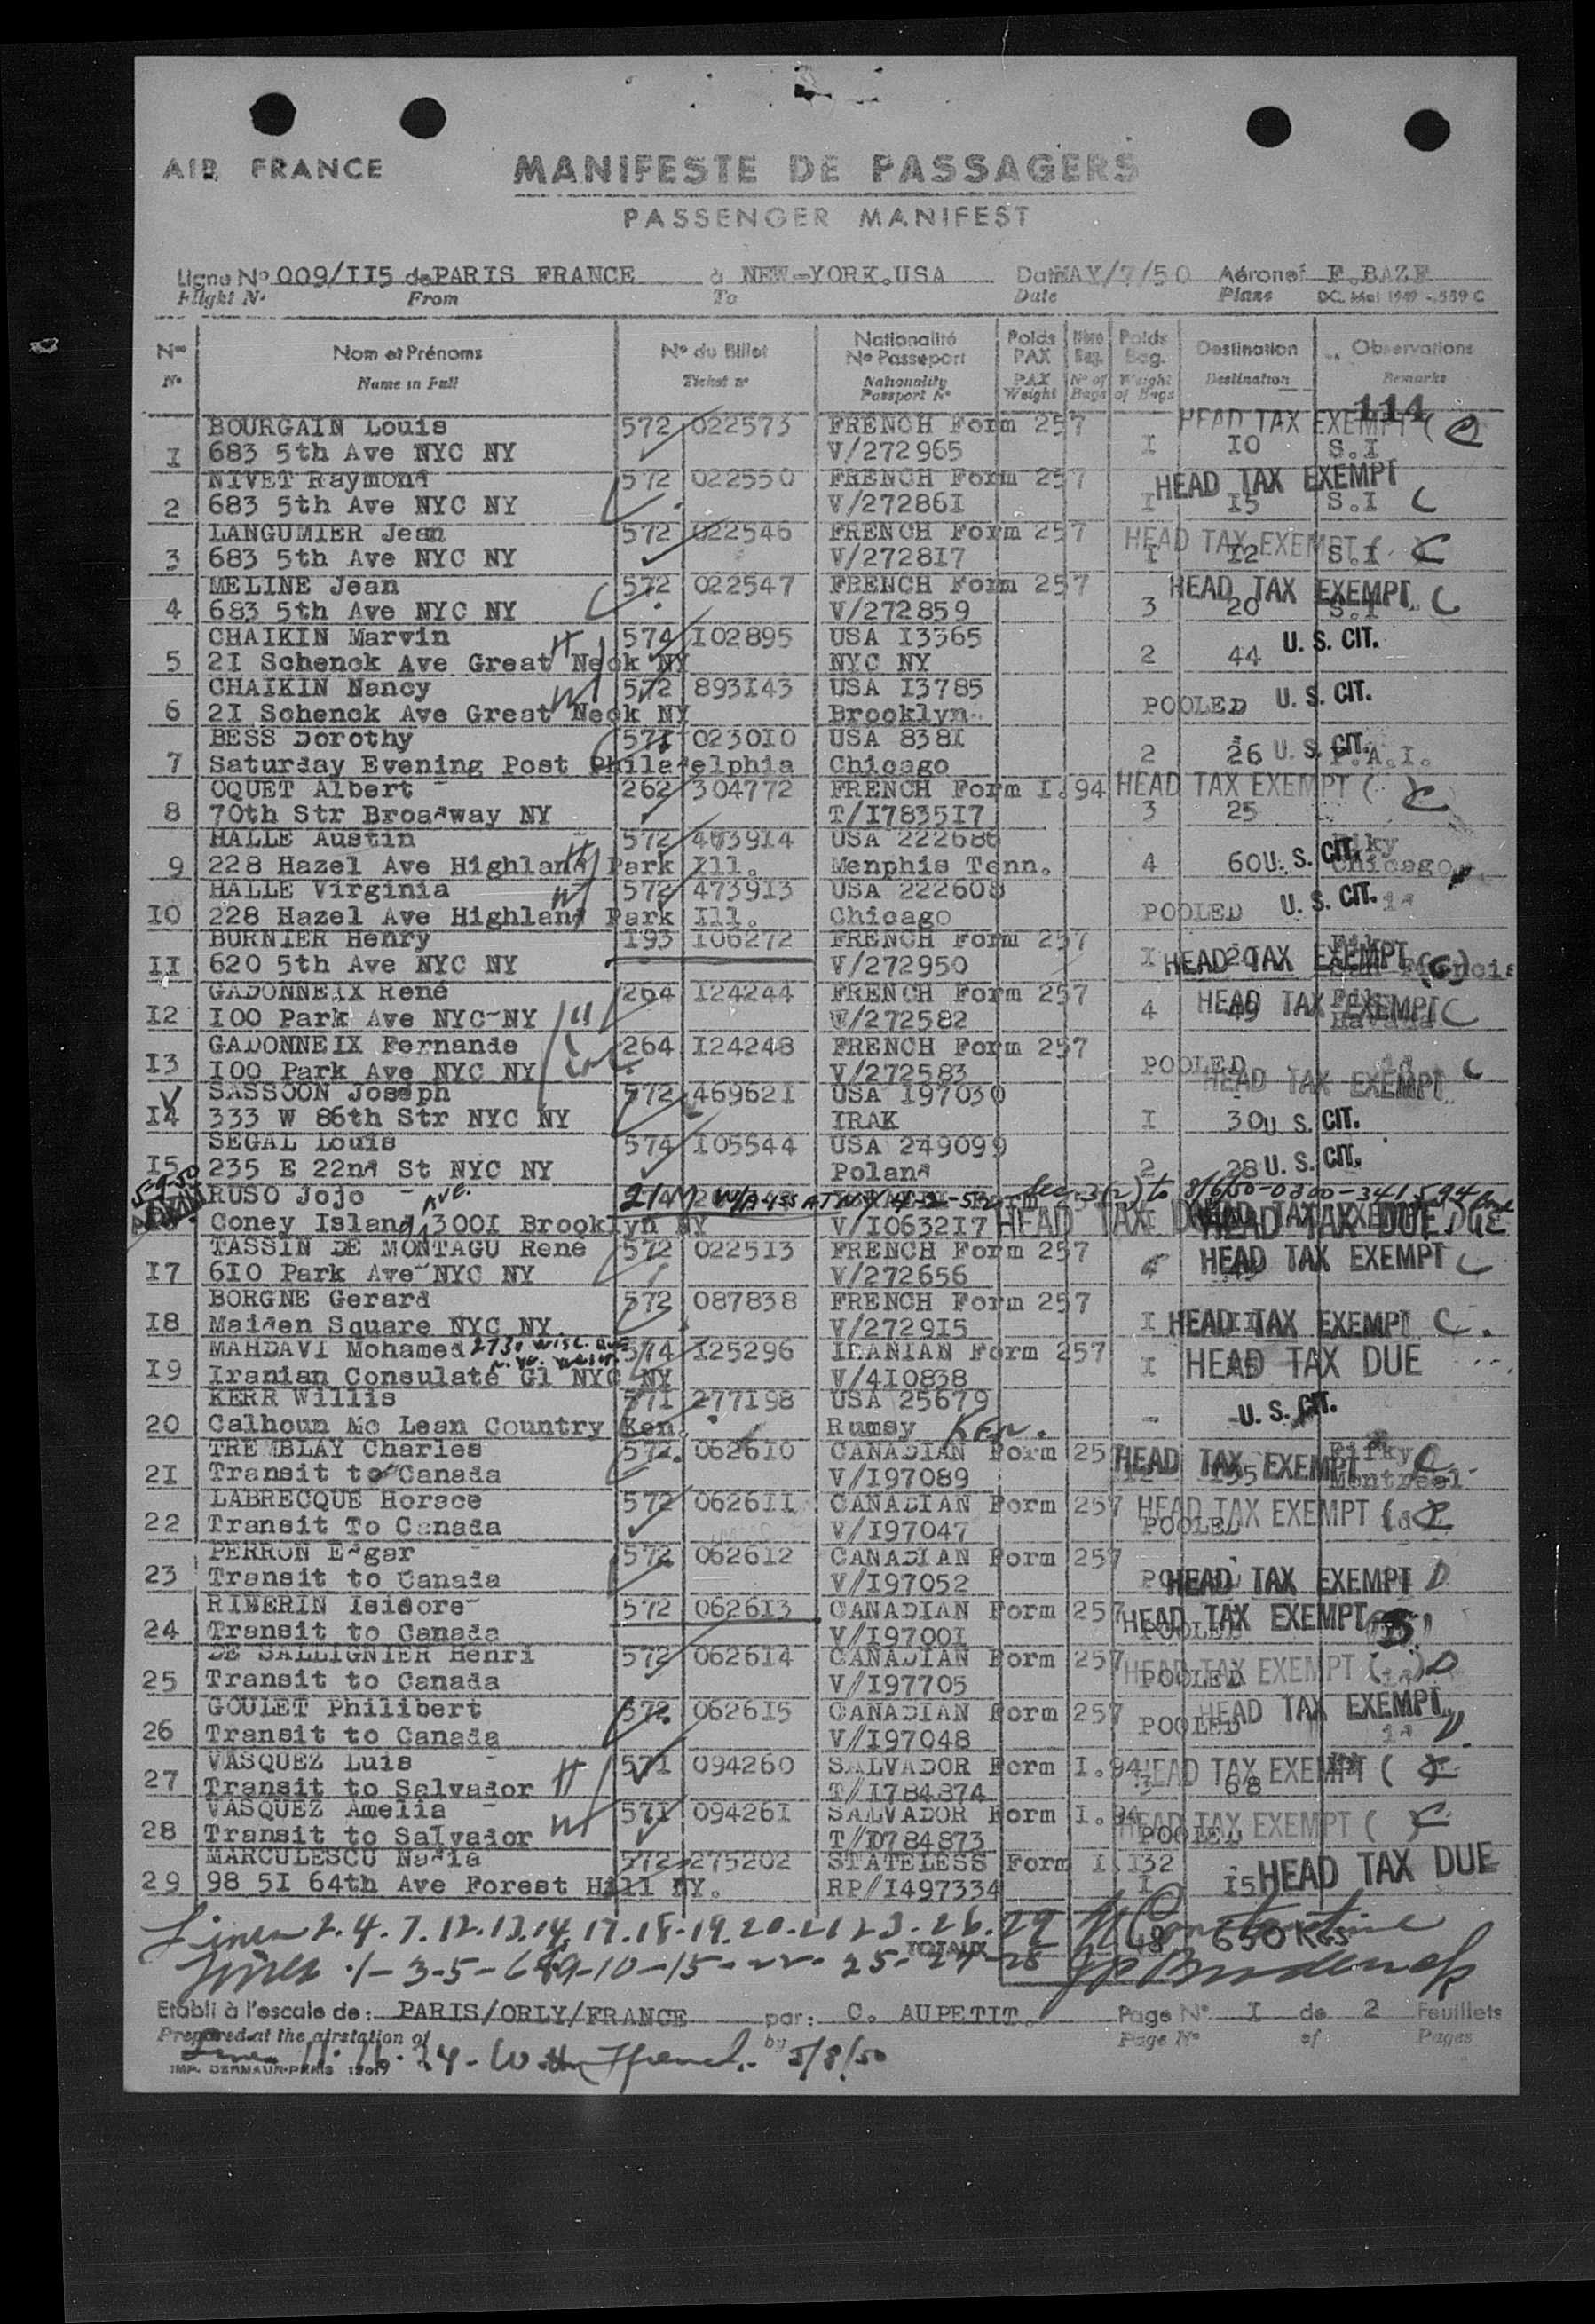 AIR FRANCE
MANIFESTE DE PASSAGERS
PASSENGER MANIFEST
Ligne No 009/II5 de PARIS FRANCE à NEW-YORK.USA Date MAY/7/50 Aéronef F.BAZF
Flight No From To Date Plane DC. Mai 1949 - 559 C
Nos Nom et Prénoms No du Billet Nationalité No Passeport Poids PAX Nbre Bag. Poids Bag. Destination Observations
No Name in Full Ticket no Nationality Passport No PAX Weight No of Bags Weight of Bags Destination Remarks
114
BOURGAIN Louis 572 022573 FRENCH Form 257 HEAD TAX EXEMPT ( C
I 683 5th Ave NYC NY V/272965 I IO S.I
NIVET Raymond 572 022550 FRENCH Form 257 HEAD TAX EXEMPT
2 683 5th Ave NYC NY V/27286I I I5 S.I C
LANGUMIER Jean 572 022546 FRENCH Form 257 HEAD TAX EXEMPT ( C
3 683 5th Ave NYC NY V/2728I7 I I2 S.I
MELINE Jean 572 022547 FRENCH Form 257 HEAD TAX EXEMPT C
4 683 5th Ave NYC NY V/272859 3 20 S.I
CHAIKIN Marvin H 574 I02895 USA I3365 U. S. CIT.
5 2I Schenck Ave Great Neck NY NYC NY 2 44
CHAIKIN Nancy W 572 893I43 USA I3785 U. S. CIT.
6 2I Schenck Ave Great Neck NY Brooklyn POOLED
BESS Dorothy 57I 0230I0 USA 838I U. S. CIT.
7 Saturday Evening Post Philadelphia Chicago 2 26 P.A.I.
OQUET Albert 262 304772 FRENCH Form I.94 HEAD TAX EXEMPT ( C
8 70th Str Broadway NY T/I7835I7 3 25
HALLE Austin H 572 473914 USA 222686
9 228 Hazel Ave Highland Park Ill. Menphis Tenn. 4 60 U. S. CIT. Chicago
HALLE Virginia W 572 4739I3 USA 222608 U. S. CIT.
IO 228 Hazel Ave Highland Park Ill. Chicago POOLED id
BURNIER Henry I93 I06272 FRENCH Form 257
II 620 5th Ave NYC NY V/272950 I 20 HEAD TAX EXEMPT (C)
GADONNEIX René 264 I24244 FRENCH Form 257 HEAD TAX EXEMPT C
I2 I00 Park Ave NYC NY H V/272582 4 49 Havana
GADONNEIX Fernande 264 I24248 FRENCH Form 257
I3 I00 Park Ave NYC NY V/272583 POOLED HEAD TAX EXEMPT C
SASSOON Joseph 572 46962I USA I97030
I4 333 W 86th Str NYC NY IRAK I 30 U. S. CIT.
SEGAL Louis 574 I05544 USA 249099
I5 235 E 22nd St NYC NY Poland 2 28 U. S. CIT.
5-9-50 RUSO Jojo
Coney Island Ave. 300I Brooklyn NY V/I0632I7 HEAD TAX DUE
TASSIN DE MONTAGU Rene 572 0225I3 FRENCH Form 257 HEAD TAX EXEMPT C
I7 6I0 Park Ave NYC NY V/272656 4
BORGNE Gerard 572 087838 FRENCH Form 257
I8 Maiden Square NYC NY V/2729I5 I II HEAD TAX EXEMPT C.
MAHDAVI Mohamed 574 I25296 IRANIAN Form 257
I9 Iranian Consulate Gl NYC NY V/4I0838 I HEAD TAX DUE
KERR Willis 57I 277I98 USA 25679 U. S. CIT.
20 Calhoun Mc Lean Country Ken. Rumsy Ken.
TREMBLAY Charles 572 0626I0 CANADIAN Form 257 HEAD TAX EXEMPT C
2I Transit to Canada V/I97089 Montreal
LABRECQUE Horace 572 0626II CANADIAN Form 257 HEAD TAX EXEMPT (
22 Transit To Canada V/I97047 POOLED id
PERRON Edgar 572 0626I2 CANADIAN Form 257
23 Transit to Canada V/I97052 POOLED HEAD TAX EXEMPT D
RIMERIN Isidore 572 0626I3 CANADIAN Form 257 HEAD TAX EXEMPT
24 Transit to Canada V/I9700I POOLED
DE SALLIGNIER Henri 572 0626I4 CANADIAN Form 257 HEAD TAX EXEMPT ( ) D
25 Transit to Canada V/I97705 POOLED id
GOULET Philibert 572 0626I5 CANADIAN Form 257 HEAD TAX EXEMPT
26 Transit to Canada V/I97048 POOLED id D
VASQUEZ Luis H 57I 094260 SALVADOR Form I.94 HEAD TAX EXEMPT ( C
27 Transit to Salvador T/I784874 3 68
VASQUEZ Amelia W 57I 09426I SALVADOR Form I.94 HEAD TAX EXEMPT ( C
28 Transit to Salvador T/I784873 POOLED
MARCULESCU Nadia 572 275202 STATELESS Form I.I32
29 98 5I 64th Ave Forest Hill NY. RP/I497334 I I5 HEAD TAX DUE
Lines 2.4.7.12.13.14.17.18-19.20-21 23-26.29
TOTAUX 48 650 KGS
Lines 1-3-5-6-8-9-10-15-22-25-27-28
Etabli à l'escale de: PARIS/ORLY/FRANCE par: C. AUPETIT. Page No I de 2 Feuillets
Prepared at the airstation of by Page No of Pages
Lines 11.16.24- 5/8/50